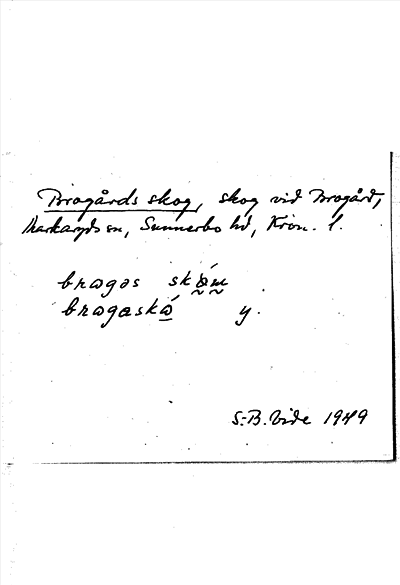 Brogårds skog, skog vid Brogård,
Markaryds sn, Sunnerbo hd, Kron. l.
brogas
brogaskó y.
S.-B. Vide 1949